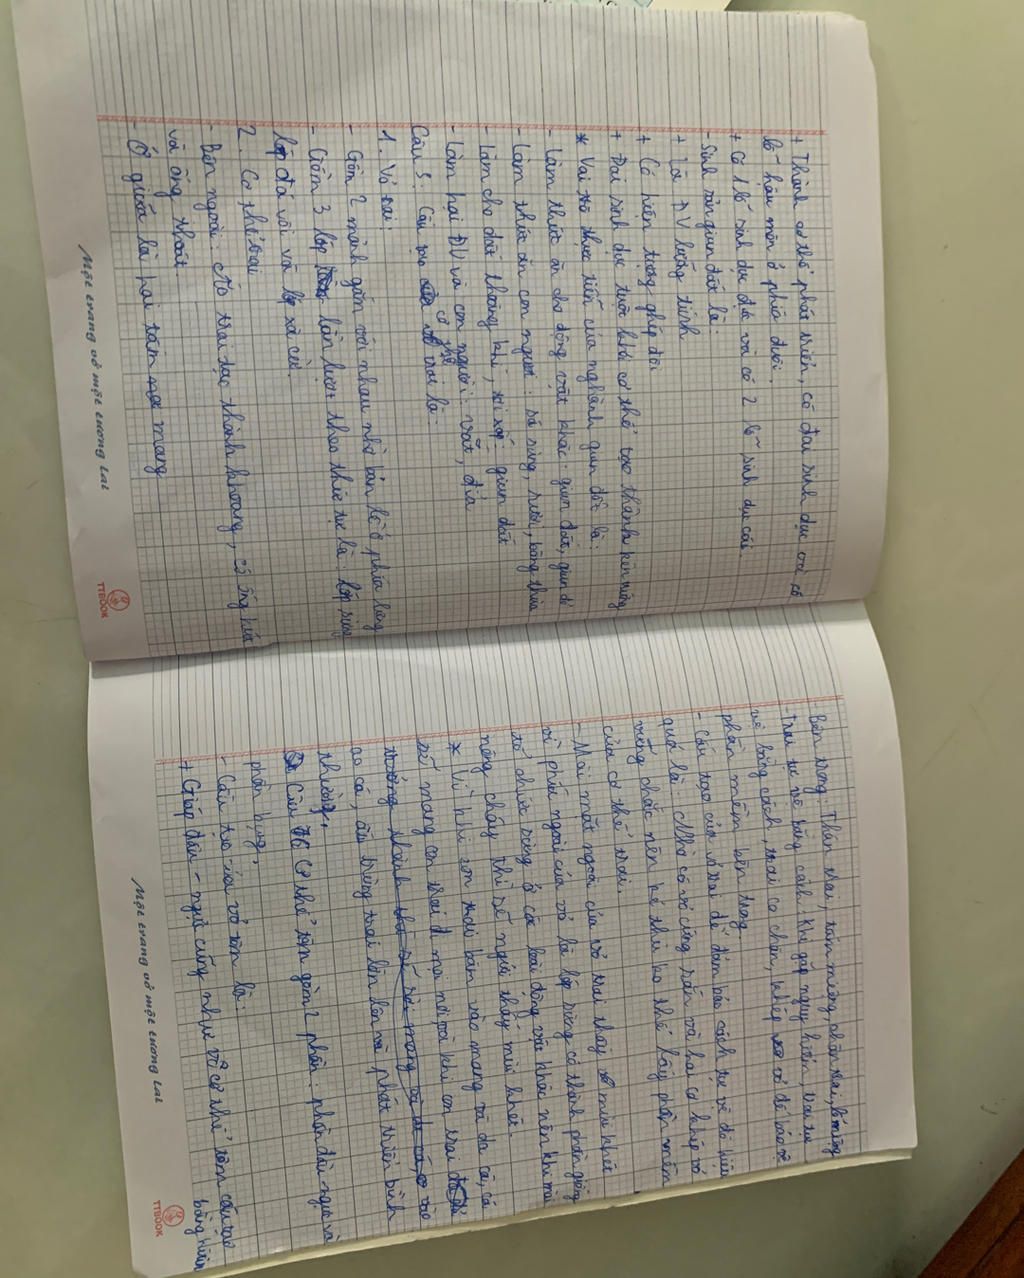 + Thành cơ thể phát triển, có đai sinh dục và có
lỗ hậu môn ở phía đuôi.
+ Có 1 lỗ sinh dục đực và có 2 lỗ sinh dục cái.
- Sinh sản giun đất là:
+ Là ĐV lưỡng tính
+ Có hiện tượng ghép đôi
+ Đai sinh dục tuột khỏi cơ thể tạo thành kén trứng
* Vai trò thực tiễn của nghành giun đốt là:
- Làm thức ăn cho động vật khác: giun đất, giun đỏ
- Làm thức ăn con người: sá sùng, rươi, bông thùa
- Làm cho đất thoáng khí, tơi xốp: giun đất
- Làm hại ĐV và con người: vắt, đỉa
Câu 5: Cấu tạo cơ thể trai là:
1. Vỏ trai:
- Gồm 2 mảnh gắn với nhau nhờ bản lề ở phía lưng
- Gồm 3 lớp lần lượt theo thứ tự là: lớp sừng
lớp đá vôi và lớp xà cừ.
2. Cơ thể trai
- Bên ngoài: Áo trai tạo thành khoang, có ống hút
và ống thoát
- Ở giữa là hai tấm mang
Một trang vở một tương lai
TTBOOK
Bên trong: Thân trai, tấm miệng chân trai, lỗ miệng
- Trai tự vệ bằng cách khi gặp nguy hiểm, trai tự
vệ bằng cách, trai co chân, khép vỏ để bảo vệ
phần mềm bên trong
- Cấu tạo của vỏ trai để đảm bảo cách tự vệ đó hiệu
quả là: Nhờ có vỏ cứng rắn và hai cơ khép vỏ
vững chắc nên kẻ thù ko thể lấy phần mềm
của cơ thể trai.
- Mài mặt ngoài của vỏ trai thấy mùi khét
vì phía ngoài của vỏ là lớp sừng có thành phần giống
tổ chức sừng ở các loài động vật khác nên khi mài
nóng cháy thì sẽ ngửi thấy mùi khét.
* Vì khi con trai bám vào mang và da cá, cá
sẽ mang con trai đi mọi nơi và khi con trai vào
ao cá, ấu trùng trai lớn lên và phát triển bình
thường.
Câu 6 Cơ thể tôm gồm 2 phần: phần đầu-ngực và
phần bụng.
- Cấu tạo của vỏ tôm là:
+ Giáp đầu - ngực cũng như vỏ cơ thể tôm cấu tạo
bằng kitin
Một trang vở một tương lai
TTBOOK